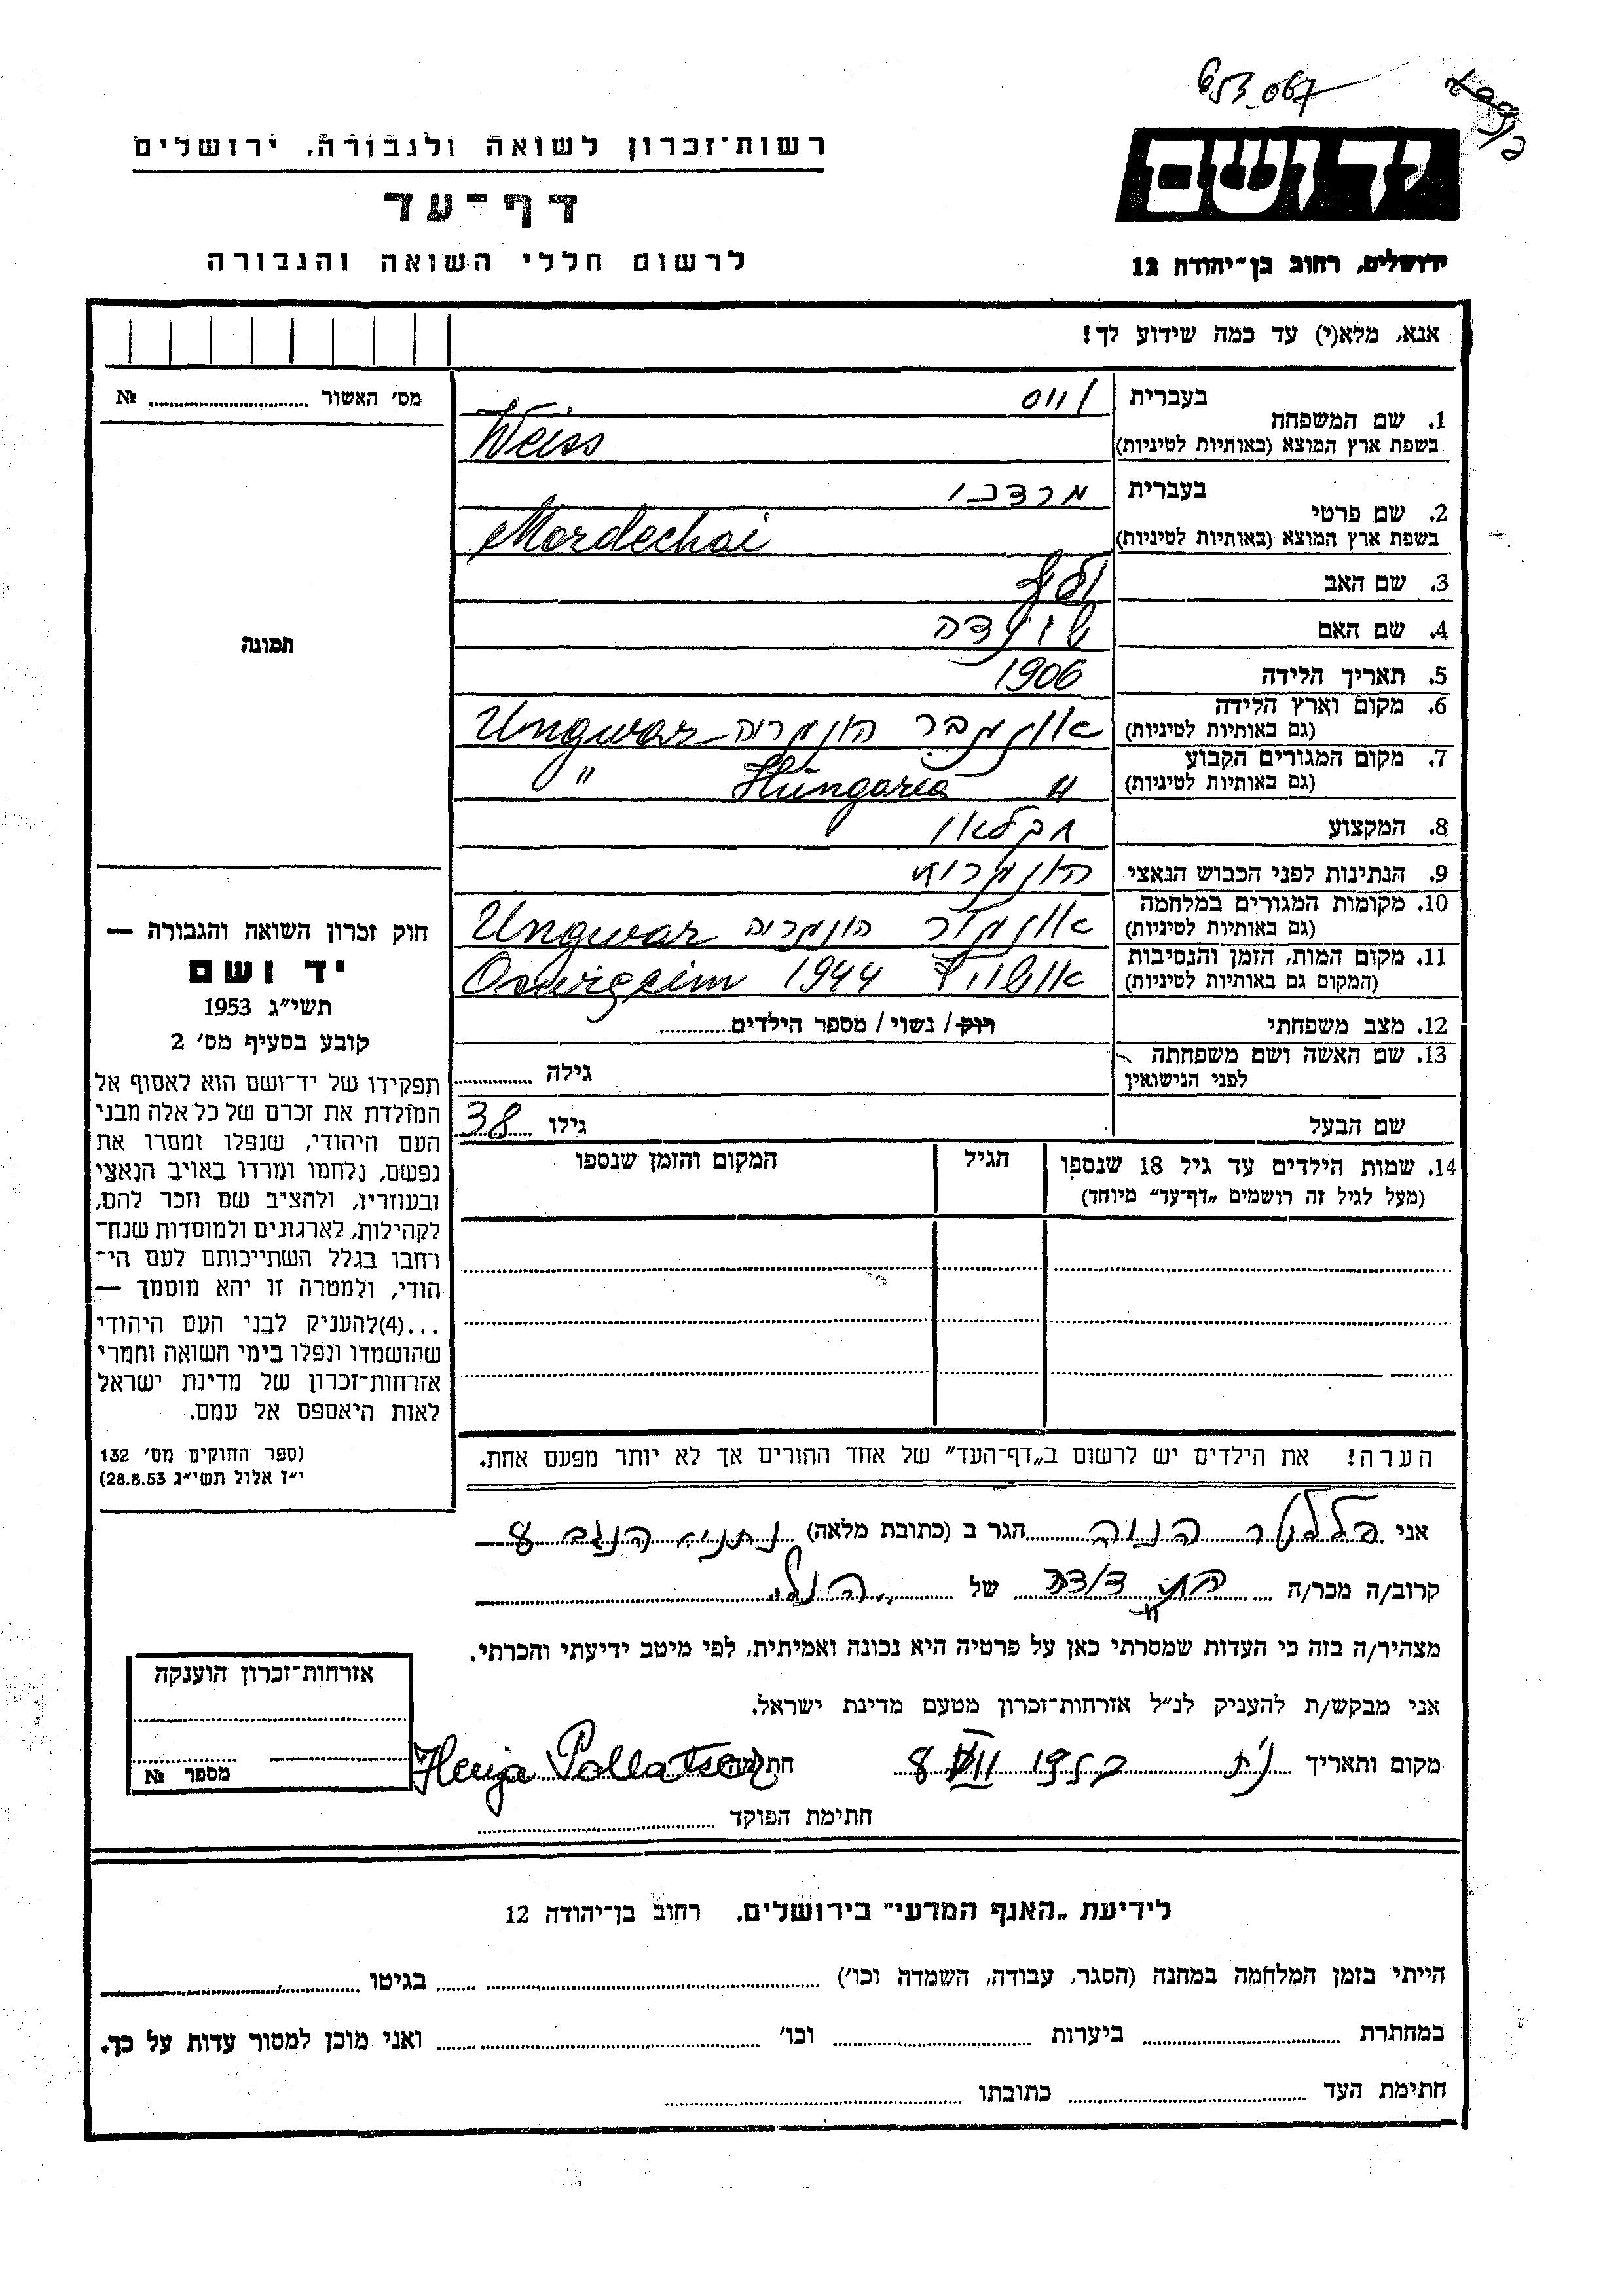 רשות־זכרון לשואה ולגבורה, ירושלים
דף־עד
לרשום חללי השואה והגבורה
ידושם
ירושלים, רחוב בן־יהודה 12
אנא, מלא(י) עד כמה שידוע לך!
מס' האשור № ........
תמונה
1. שם המשפחה
בעברית ווייס
בשפת ארץ המוצא (באותיות לטיניות) Weiss
2. שם פרטי
בעברית מרדכי
בשפת ארץ המוצא (באותיות לטיניות) Mordechai
3. שם האב
4. שם האם
5. תאריך הלידה 1906
6. מקום וארץ הלידה
(גם באותיות לטיניות) אונגבר הונגריה Ungwar
7. מקום המגורים הקבוע
(גם באותיות לטיניות) " Hungaria "
8. המקצוע חקלאי
9. הנתינות לפני הכבוש הנאצי הונגרית
10. מקומות המגורים במלחמה
(גם באותיות לטיניות) הונגריה Ungwar
11. מקום המות, הזמן והנסיבות
(המקום גם באותיות לטיניות) 1944
12. מצב משפחתי רוק / נשוי / מספר הילדים........
13. שם האשה ושם משפחתה
לפני הנישואין גילה ........
שם הבעל גילו 38
14. שמות הילדים עד גיל 18 שנספו
(מעל לגיל זה רושמים „דף־עד" מיוחד)
הגיל
המקום והזמן שנספו
חוק זכרון השואה והגבורה —
יד ושם
תשי"ג 1953
קובע בסעיף מס' 2
תפקידו של יד־ושם הוא לאסוף אל
המולדת את זכרם של כל אלה מבני
העם היהודי, שנפלו ומסרו את
נפשם, נלחמו ומרדו באויב הנאצי
ובעוזריו, ולהציב שם וזכר להם,
לקהילות, לארגונים ולמוסדות שנח־
רחבו בגלל השתייכותם לעם הי־
הודי, ולמטרה זו יהא מוסמך —
...(4)להעניק לבני העם היהודי
שהושמדו ונפלו בימי השואה והמרי
אזרחות־זכרון של מדינת ישראל
לאות היאספם אל עמם.
(ספר החוקים מס' 132
י"ז אלול תשי"ג 28.8.53)
הערה! את הילדים יש לרשום ב„דף־העד" של אחד ההורים אך לא יותר מפעם אחת.
אני הגר ב (כתובת מלאה) נתניה הנגב 8
קרוב/ה מכר/ה של הנ"ל
מצהיר/ה בזה כי העדות שמסרתי כאן על פרטיה היא נכונה ואמיתית, לפי מיטב ידיעתי והכרתי.
אני מבקש/ת להעניק לנ"ל אזרחות־זכרון מטעם מדינת ישראל.
מקום ותאריך 8 VIII 1957 חתימה
חתימת הפוקד ........
אזרחות־זכרון הוענקה
מספר №
לידיעת „האגף המדעי" בירושלים, רחוב בן־יהודה 12
הייתי בזמן המלחמה במחנה (הסגר, עבודה, השמדה וכו') ........ בגיטו ........
במחתרת ........ ביערות ........ וכו' ........ ואני מוכן למסור עדות על כך.
חתימת העד ........ כתובתו ........